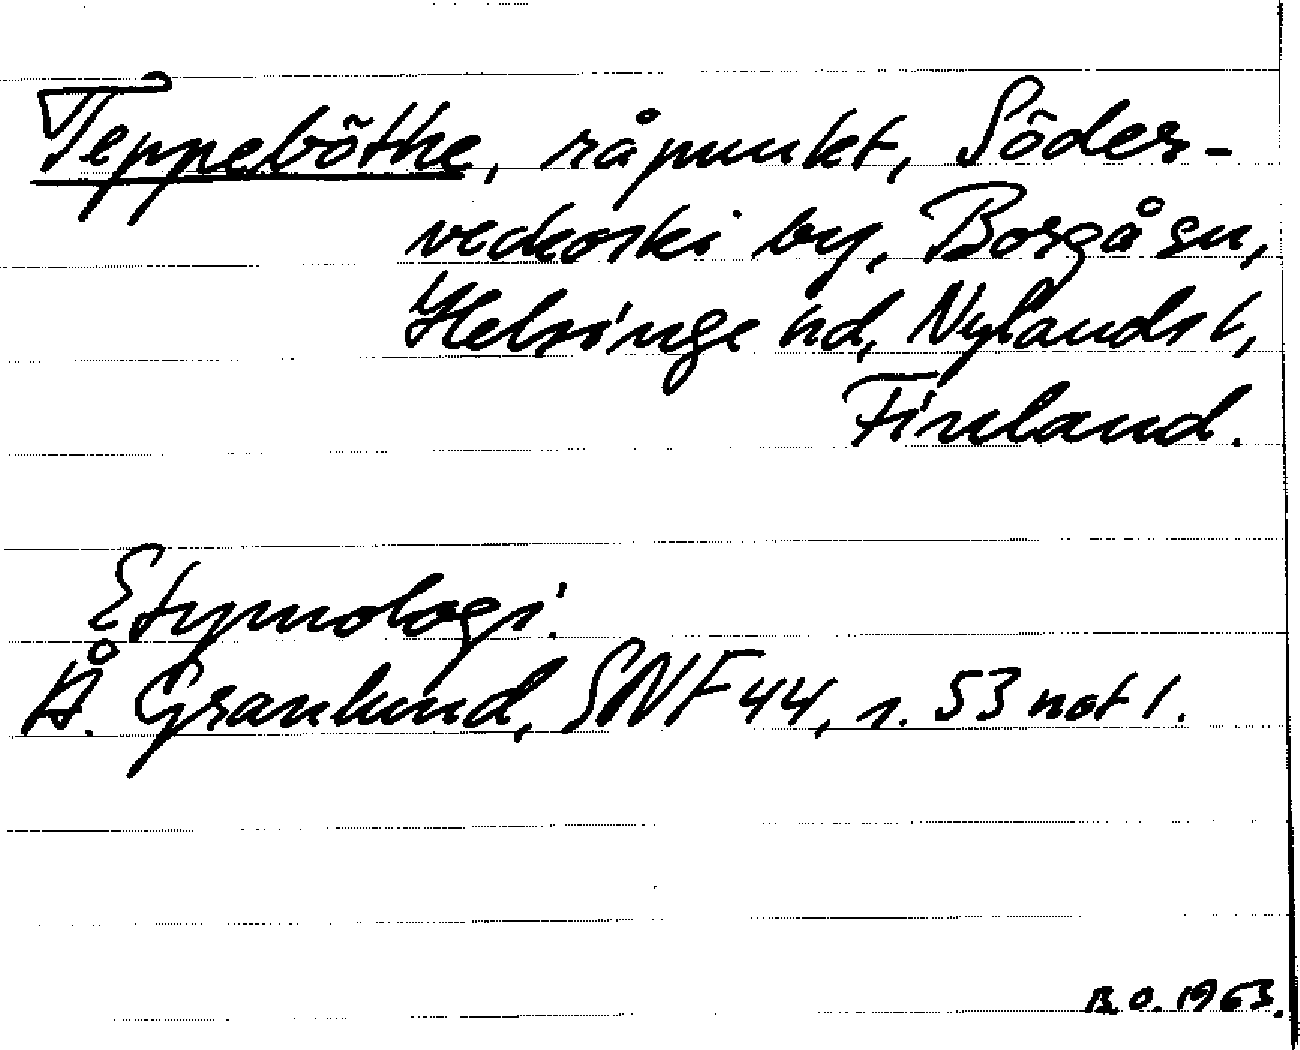 Teppeböthe, råpunkt, Söder-
veckoski by, Borgå sn,
Helsinge hd, Nylands l,
Finland.
Etymologi.
Å. Granlund, SNF 44, s. 53 not 1.
B.O. 1963.